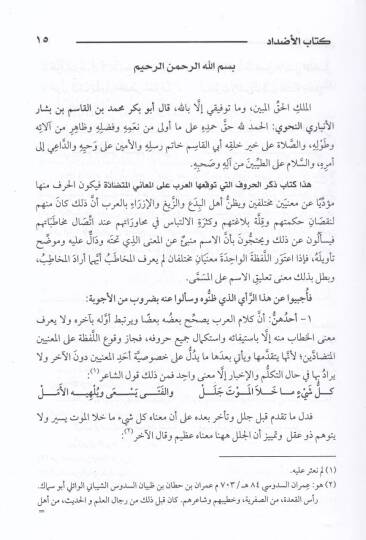 كتاب الأضداد ١٥
بسم الله الرحمن الرحيم
الملكِ الحقّ المبين، وما توفيقي إلّا بالله، قال أبو بكر محمد بن القاسم بن بشار
الأنباري النحوي: الحمد لله حقَّ حمدِهِ على ما أولى من نعَمِهِ وفضلِهِ وظاهرِ من آلائه
وطَوْلِهِ، والصَّلاة على خير خلقِهِ أبي القاسم خاتم رسلِهِ والأمين على وَحيِهِ والدَّاعي إلى
أمرِهِ، والسَّلام على الطيِّبينَ من آلِهِ وصَحبِهِ.
هذا كتاب ذكر الحروف التي توقعها العرب على المعاني المتضادّة فيكون الحرف منها
مؤدِّيًا عن معنيَيْن مختلفين ويظنُّ أهل البِدَع والزَّيغ والإزرَاءِ بالعرب أنَّ ذلك كانَ منهم
لنقصَانِ حكمتهم وقِلَّة بلاغتهم وكثرَةِ الالتباس في محاوراتهم عند اتِّصَال مخاطَباتهم
فيسألُون عن ذلك ويحتجُّونَ بأنَّ الاسم منبئٌ عن المعنى الذي تحته ودَالٌّ عليه وموضّح
تأويلَهُ، فإذا اعتَوَر اللَّفظةَ الواحِدةَ معنَيَان مختلفان لم يعرف المخاطَبُ أيّهما أرادَ المخاطِبُ،
وبطل بذلك معنى تعليق الاسم على المسمَّى.
فأُجيبوا عن هذا الرَّأي الذي ظنُّوه وسألوا عنه بضُروبٍ من الأجوبة:
١- أحدُهنَّ: أنَّ كلام العرب يصحّح بعضُه بعضًا ويرتبط أوَّله بآخره ولا يعرف
معنى الخطاب منه إلَّا باستيفائه واستكمال جميع حروفه، فجاز وقوع اللَّفظة على المعنيين
المتضادَّين؛ لأنَّها يتقدَّمها ويأتي بعدها ما يدُلُّ على خصوصيَّة أحدِ المعنيين دونَ الآخر ولا
يرادُ بها في حال التكلُّم والإخبار إلَّا معنى واحد فمن ذلك قول الشاعر(١):
كـلُّ شَيْءٍ مـا خَـلَا المَـوْتَ جَلَـل والفَتَـى يَسْـعَى وَيُلْهِيـهِ الأَمَـلْ
فدل ما تقدم قبل جلل وتأخر بعده على أن معناه كل شيء ما خلا الموت يسير ولا
يتوهم ذو عقل وتمييز أن الجلل ههنا معناه عظيم وقال الآخر(٢):
(١) لم نعثر عليه.
(٢) هو: عِمران السدوسي ٨٤ هـ / ٧٠٣ م عمران بن حطان بن ظبيان السدوسي الشيباني الوائلي أبو سماك.
رأس القعدة، من الصفرية، وخطيبهم وشاعرهم. كان قبل ذلك من رجال العلم و الحديث، من أهل